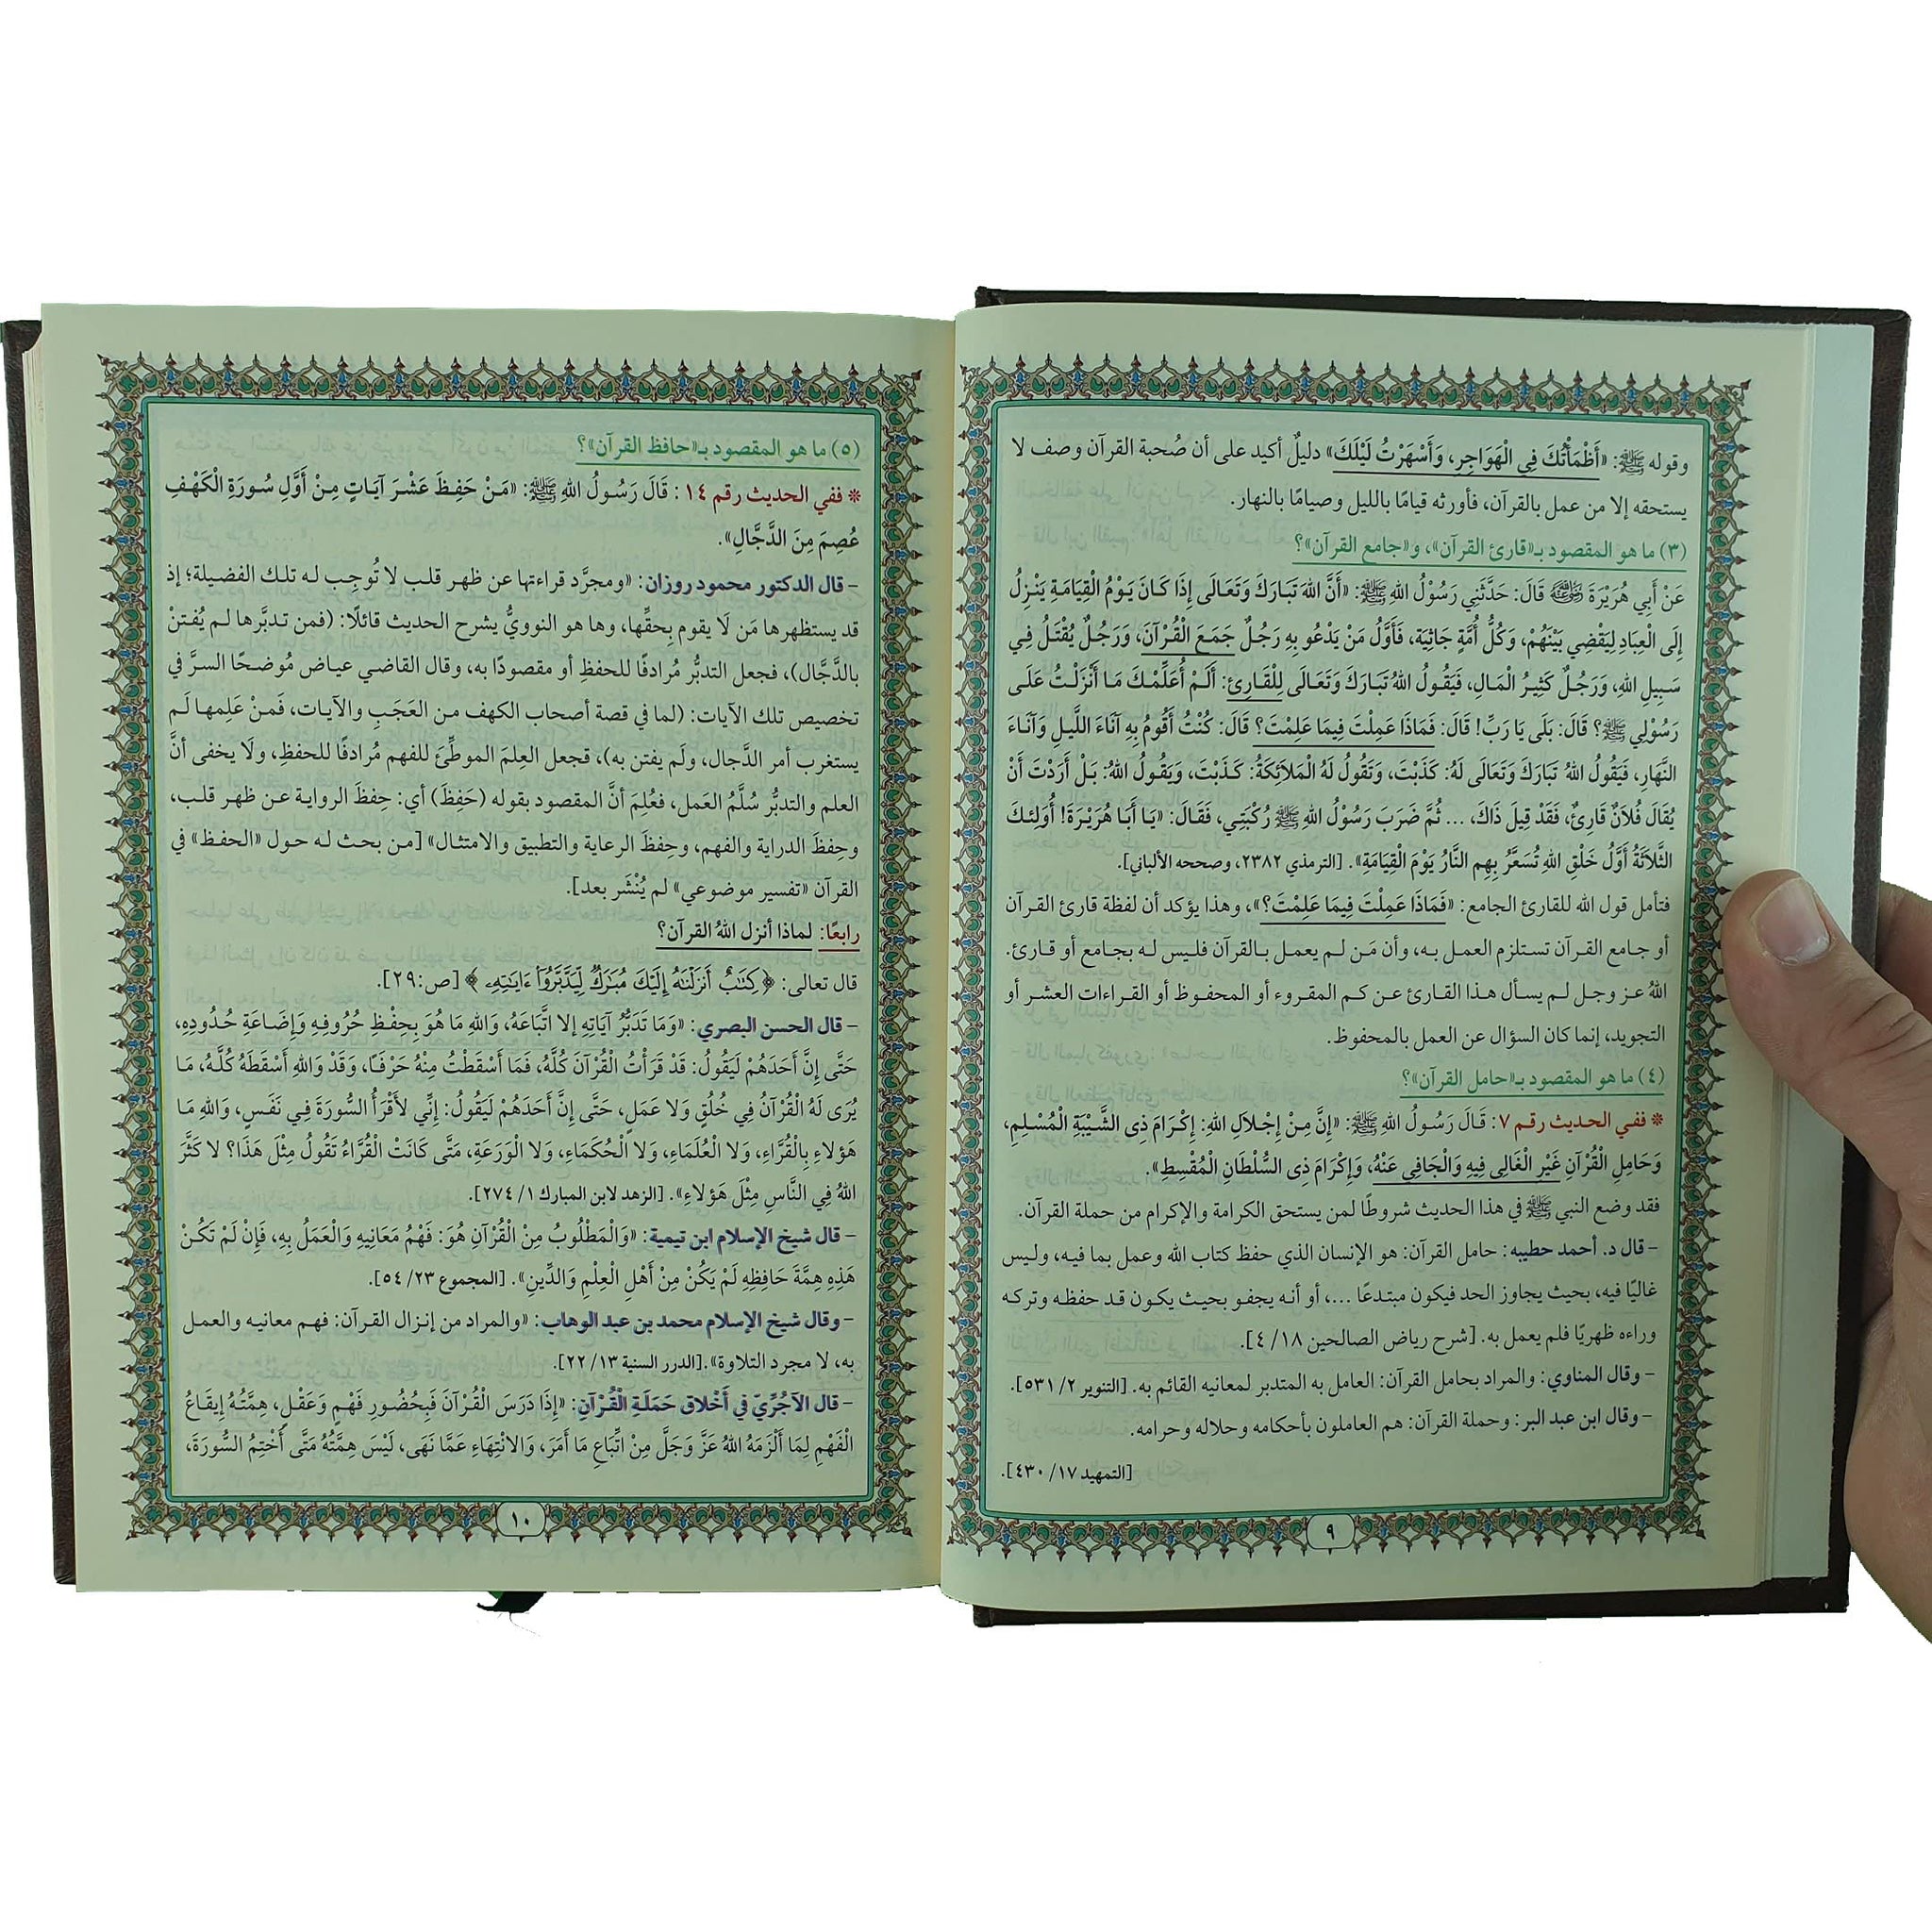 وقوله ﷺ: «أَظْمَأْتُكَ فِي الْهَوَاجِرِ، وَأَسْهَرْتُ لَيْلَكَ» دليلٌ أكيد على أن صُحبة القرآن وصف لا
يستحقه إلا من عمل بالقرآن، فأورثه قيامًا بالليل وصيامًا بالنهار.
(٣) ما هو المقصود بـ«قارئ القرآن»، و«جامع القرآن»؟
عَنْ أَبِي هُرَيْرَةَ رضي الله عنه قَالَ: حَدَّثَنِي رَسُوْلُ اللهِ ﷺ: «أَنَّ اللهَ تَبَارَكَ وَتَعَالَى إِذَا كَانَ يَوْمُ الْقِيَامَةِ يَنْزِلُ
إِلَى الْعِبَادِ لِيَقْضِي بَيْنَهُمْ، وَكُلُّ أُمَّةٍ جَاثِيَة، فَأَوَّلُ مَنْ يَدْعُو بِهِ رَجُلٌ جَمَعَ الْقُرْآنَ، وَرَجُلٌ يُقْتَلُ فِي
سَبِيلِ اللهِ، وَرَجُلٌ كَثِيرُ الْمَالِ، فَيَقُولُ اللهُ تَبَارَكَ وَتَعَالَى لِلْقَارِئِ: أَلَمْ أُعَلِّمْكَ مَا أَنْزَلْتُ عَلَى
رَسُوْلِي ﷺ؟ قَالَ: بَلَى يَا رَبِّ! قَالَ: فَمَاذَا عَمِلْتَ فِيمَا عَلِمْتَ؟ قَالَ: كُنْتُ أَقُومُ بِهِ آنَاءَ اللَّيلِ وَآنَاءَ
النَّهَارِ، فَيَقُولُ اللهُ تَبَارَكَ وَتَعَالَى لَهُ: كَذَبْتَ، وَتَقُولُ لَهُ الْمَلَائِكَةُ: كَذَبْتَ، وَيَقُولُ اللهُ: بَلْ أَرَدْتَ أَنْ
يُقَالَ فُلَانٌ قَارِئٌ، فَقَدْ قِيلَ ذَاكَ، ... ثُمَّ ضَرَبَ رَسُوْلُ اللهِ ﷺ رُكْبَتِي، فَقَالَ: «يَا أَبَا هُرَيْرَةَ! أُوْلَئِكَ
الثَّلَاثَةُ أَوَّلُ خَلْقِ اللهِ تُسَعَّرُ بِهِم النَّارُ يَوْمَ الْقِيَامَةِ». [الترمذي ٢٣٨٢، وصححه الألباني].
فتأمل قول الله للقارئ الجامع: «فَمَاذَا عَمِلْتَ فِيمَا عَلِمْتَ؟»، وهذا يؤكد أن لفظة قارئ القرآن
أو جامع القرآن تستلزم العمل به، وأن مَن لم يعمل بالقرآن فليس له بجامع أو قارئ.
اللهُ عز وجل لم يسأل هذا القارئ عن كم المقروء أو المحفوظ أو القراءات العشر أو
التجويد، إنما كان السؤال عن العمل بالمحفوظ.
(٤) ما هو المقصود بـ«حامل القرآن»؟
* ففي الحديث رقم ٧: قَالَ رَسُولُ اللهِ ﷺ: «إِنَّ مِنْ إِجْلَالِ اللهِ: إِكْرَامَ ذِى الشَّيْبَةِ الْمُسْلِمِ،
وَحَامِلِ الْقُرْآنِ غَيْرِ الْغَالِى فِيهِ وَالْجَافِي عَنْهُ، وَإِكْرَامَ ذِى السُّلْطَانِ الْمُقْسِطِ».
فقد وضع النبي ﷺ في هذا الحديث شروطًا لمن يستحق الكرامة والإكرام من حملة القرآن.
– قال د. أحمد حطيبه: حامل القرآن: هو الإنسان الذي حفظ كتاب الله وعمل بما فيه، وليس
غاليًا فيه، بحيث يجاوز الحد فيكون مبتدعًا ...، أو أنه يجفو بحيث يكون قد حفظه وتركه
وراءه ظهريًا فلم يعمل به. [شرح رياض الصالحين ١٨/ ٤].
– وقال المناوي: والمراد بحامل القرآن: العامل به المتدبر لمعانيه القائم به. [التنوير ٢/ ٥٣١].
– وقال ابن عبد البر: وحملة القرآن: هم العاملون بأحكامه وحلاله وحرامه.
[التمهيد ١٧/ ٤٣٠].
٩
(٥) ما هو المقصود بـ«حافظ القرآن»؟
* ففي الحديث رقم ١٤: قَالَ رَسُولُ اللهِ ﷺ: «مَنْ حَفِظَ عَشْرَ آيَاتٍ مِنْ أَوَّلِ سُورَةِ الْكَهْفِ
عُصِمَ مِنَ الدَّجَّالِ».
– قال الدكتور محمود روزان: «ومجرَّد قراءتها عن ظهر قلب لا تُوجِب له تلك الفضيلة؛ إذ
قد يستظهرها مَن لَا يقوم بِحقِّها، وها هو النوويُّ يشرح الحديث قائلًا: (فمن تدبَّرها لم يُفتنْ
بالدَّجَّال)، فجعل التدبُّر مُرادفًا للحفظِ أو مقصودًا به، وقال القاضي عياض مُوضحًا السرَّ في
تخصيص تلك الآيات: (لما في قصة أصحاب الكهف من العَجَبِ والآيات، فَمَنْ عَلِمها لَم
يستغرب أمر الدَّجال، ولَم يفتن به)، فجعل العِلمَ الموطِّئَ للفهم مُرادفًا للحفظِ، ولَا يخفى أنَّ
العلم والتدبُّر سُلَّمُ العَمل، فعُلِمَ أنَّ المقصود بقوله (حَفِظَ) أي: حِفظَ الرواية عن ظهر قلب،
وحِفظَ الدراية والفهم، وحِفظَ الرعاية والتطبيق والامتثال» [من بحث له حول «الحفظ» في
القرآن «تفسير موضوعي» لم يُنْشَر بعد].
رابعًا: لماذا أنزل اللهُ القرآن؟
قال تعالى: ﴿كِتَٰبٌ أَنزَلْنَٰهُ إِلَيْكَ مُبَٰرَكٌ لِّيَدَّبَّرُوٓا۟ ءَايَٰتِهِۦ﴾ [ص:٢٩].
– قال الحسن البصري: «وَمَا تَدَبُّرُ آيَاتِهِ إلا اتِّبَاعَهُ، وَاللهِ مَا هُوَ بِحِفْظِ حُرُوفِهِ وَإِضَاعَةِ حُدُودِهِ،
حَتَّى إِنَّ أَحَدَهُمْ لَيَقُولُ: قَدْ قَرَأْتُ الْقُرْآنَ كُلَّهُ، فَمَا أَسْقَطْتُ مِنْهُ حَرْفًا، وَقَدْ وَاللهِ أَسْقَطَهُ كُلَّهُ، مَا
يُرَى لَهُ الْقُرْآنُ فِي خُلُقٍ وَلا عَمَلٍ، حَتَّى إِنَّ أَحَدَهُمْ لَيَقُولُ: إِنِّي لأَقْرَأُ السُّورَةَ فِي نَفَسٍ، وَاللهِ مَا
هَؤلاءِ بِالْقُرَّاءِ، وَلا الْعُلَمَاءِ، وَلا الْحُكَمَاءِ، وَلا الْوَرَعَةِ، مَتَّى كَانَتْ الْقُرَّاءُ تَقُولُ مِثْلَ هَذَا؟ لا كَثَّرَ
اللهُ فِي النَّاسِ مِثْلَ هَؤلَاءِ». [الزهد لابن المبارك ١/ ٢٧٤].
– قال شيخ الإسلام ابن تيمية: «وَالْمَطْلُوبُ مِنْ الْقُرْآنِ هُوَ: فَهْمُ مَعَانِيهِ وَالْعَمَلُ بِهِ، فَإِنْ لَمْ تَكُنْ
هَذِهِ هِمَّةَ حَافِظِهِ لَمْ يَكُنْ مِنْ أَهْلِ الْعِلْمِ وَالدِّينِ». [المجموع ٢٣/ ٥٤].
– وقال شيخ الإسلام محمد بن عبد الوهاب: «والمراد من إنزال القرآن: فهم معانيه والعمل
به، لا مجرد التلاوة».[الدرر السنية ١٣/ ٢٢].
– قال الآجُرِّيّ في أَخْلاق حَمَلَةِ الْقُرْآنِ: «إِذَا دَرَسَ الْقُرْآنَ فَبِحُضُورِ فَهْمٍ وَعَقْلٍ، هِمَّتُهُ إِيقَاعُ
الْفَهْمِ لِمَا أَلْزَمَهُ اللهُ عَزَّ وَجَلَّ مِنْ اتِّبَاعِ مَا أَمَرَ، وَالانْتِهَاءِ عَمَّا نَهَى، لَيْسَ هِمَّتُهُ مَتَّى أَخْتِمُ السُّورَةَ،
١٠